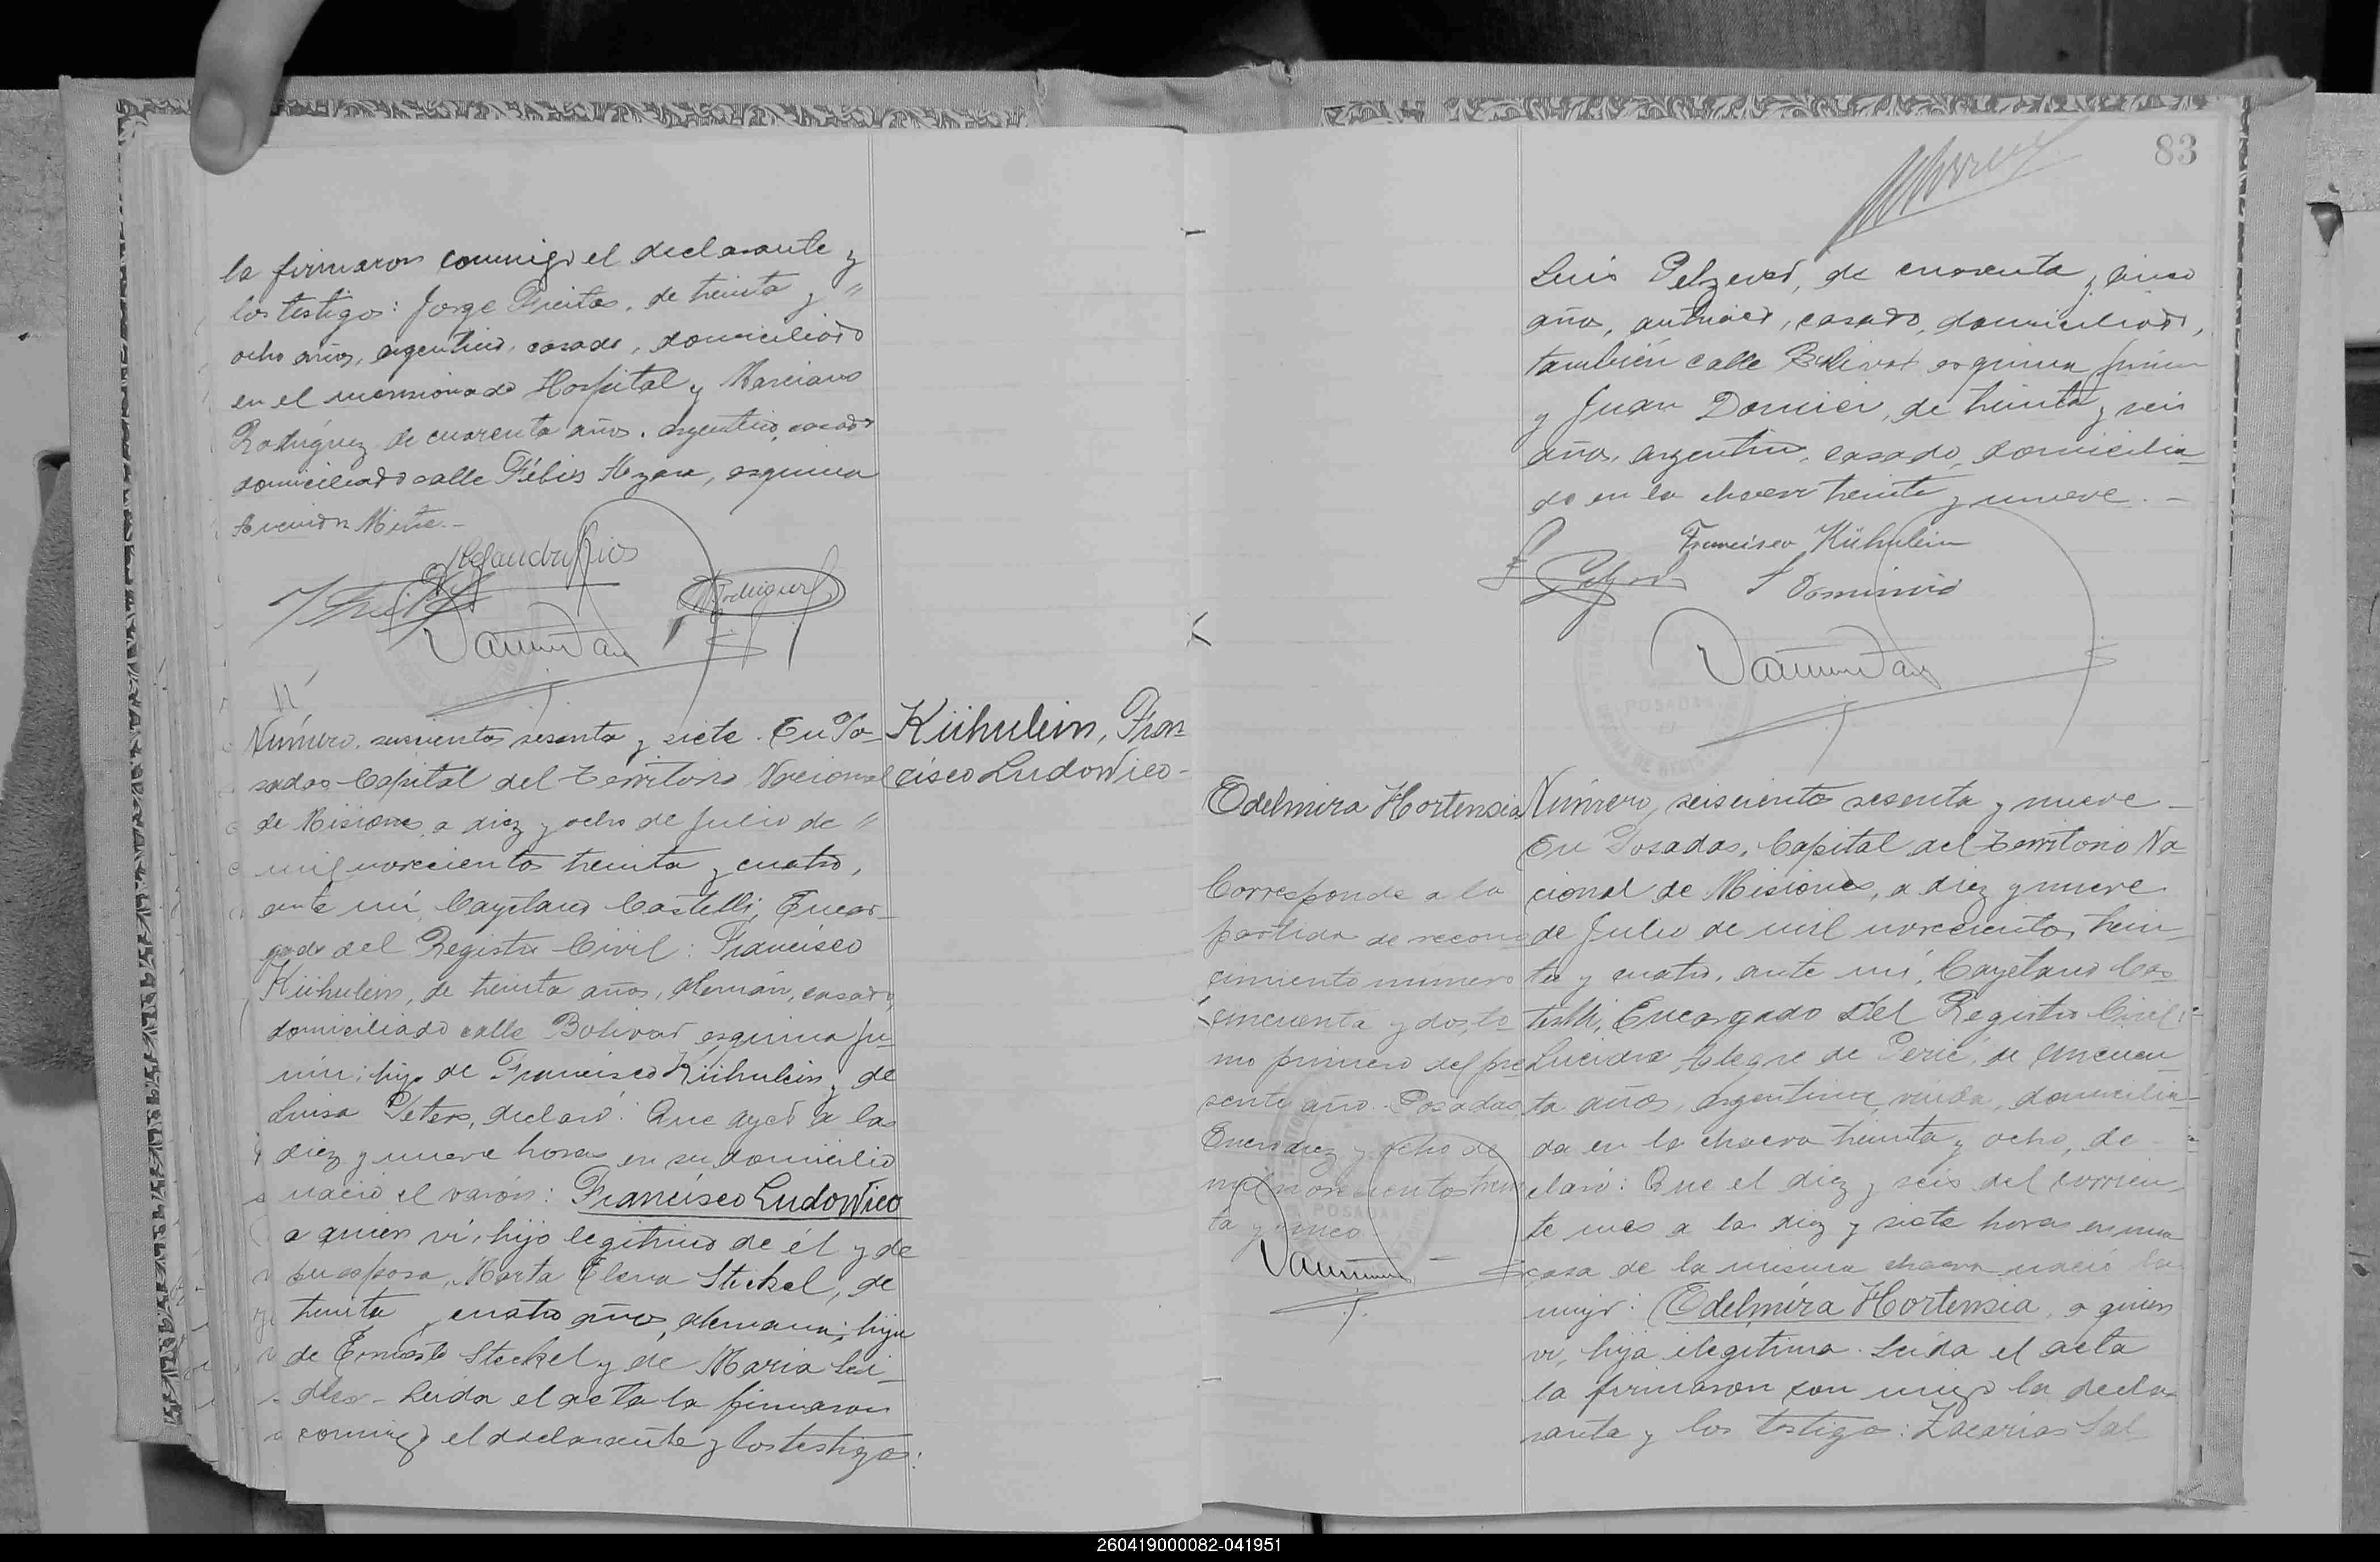 la firmaron conmigo el declarante y
los testigos: Jorge Freitas, de treinta y "
ocho años, argentino, casado, domiciliado
en el mencionado Hospital y Marciano
Rodríguez de cuarenta años, argentino, casado
domiciliado calle Félix Azara, esquina
Avenida Mitre.-
Rodriguez
Número seiscientos sesenta y siete. En Po-
sadas Capital del Territorio Nacional
de Misiones, a diez y ocho de Julio de "
mil novecientos treinta y cuatro,
ante mí, Cayetano Castelli, Encar-
gado del Registro Civil: Francisco
Kühnlein, de treinta años, alemán, casado,
domiciliado calle Bolivar esquina Ju-
nín; hijo de Francisco Kühnlein y de
Luisa Peters, declaró: Que ayer a las
diez y nueve horas en su domicilio
nació el varón: Francisco Ludowico
a quien ví, hijo legítimo de él y de
su esposa, Marta Elena Stickel, de
treinta y cuatro años, alemana; hija
de Ernesto Steckel y de María Lei-
dler - Leida el acta la firmaron
conmigo el declarante y los testigos:
Kühnlein, Fran-
cisco Ludowico-
83
Luis Pelzer, de cuarenta y cinco
años, casado, domiciliado,
también calle Bolivar esquina Junín
y Juan Domici, de treinta y seis
años, argentino, casado, domicilia-
do en la chacra treinta y nueve. -
Francisco Kühnlein
J Dominico
POSADAS
Edelmira Hortensia
Corresponde a la
partida de recono-
cimiento número
cincuenta y dos, to-
mo primero del pre-
sente año. Posadas,
Enero diez y ocho de
mil novecientos trein-
ta y cinco
POSADAS
Número, seiscientos sesenta y nueve -
En Posadas, Capital del Territorio Na-
cional de Misiones, a diez y nueve
de Julio de mil novecientos trein-
ta y cuatro, ante mí, Cayetano Cas-
telli, Encargado del Registro Civil:
Lucidia Alegre de Perié, de cincuen-
ta años, argentina, viuda, domicilia-
da en la chacra treinta y ocho, de-
claró: Que el diez y seis del corrien-
te mes a las diez y siete horas en una
casa de la misma chacra nació la
mujer: Edelmira Hortensia, a quien
ví, hija ilegítima. Leída el acta
la firmaron con migo la decla-
rante y los testigos: Zacarías Sal-
260419000082-041951